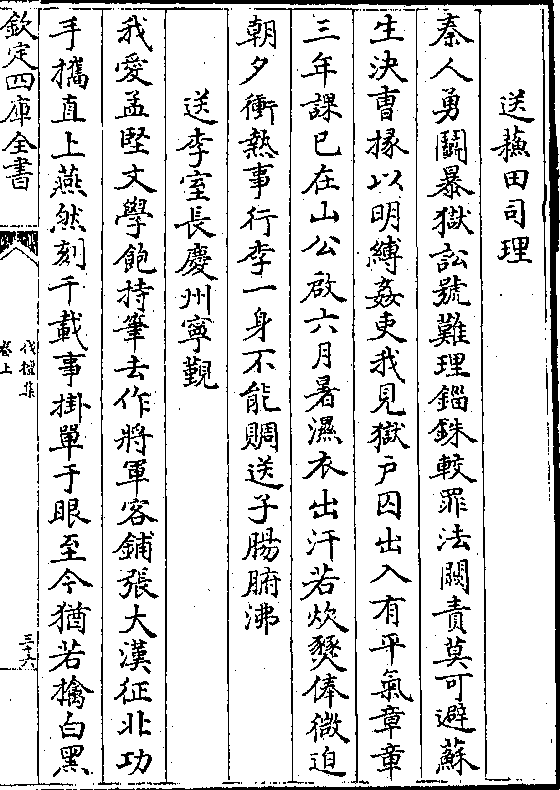 送蘓田司理
秦人勇鬬暴獄訟號難理錙銖較罪法闕責莫可避蘇
生決曺掾以明縛姦吏我見獄戸囚出入有平氣章章
三年課已在山公啟六月暑濕衣出汗若炊㷶俸微迫
朝夕衝熱事行李一身不能賙送子腸腑沸
送李室長慶州寧觐
我愛孟堅文學飽持筆去作將軍客鋪張大漢征北功
手攜直上燕然刻千載事掛單于眼至今猶若擒白黑
欽定四庫全書
伐檀集
卷上
三十六